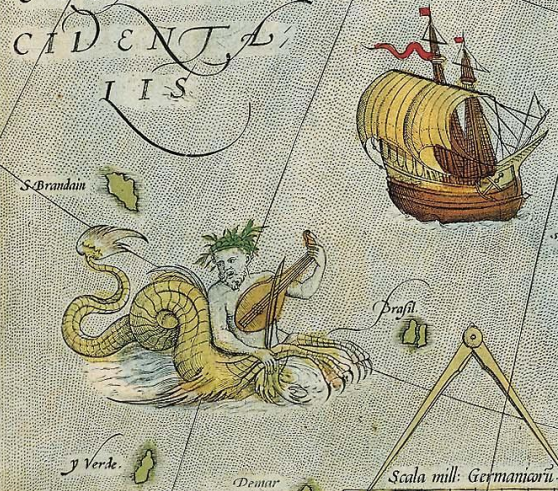 CIDENTA,
LIS
S. Brandain
Brasil.
y Verde.
Demar
Scala mill: Germanicorũ.